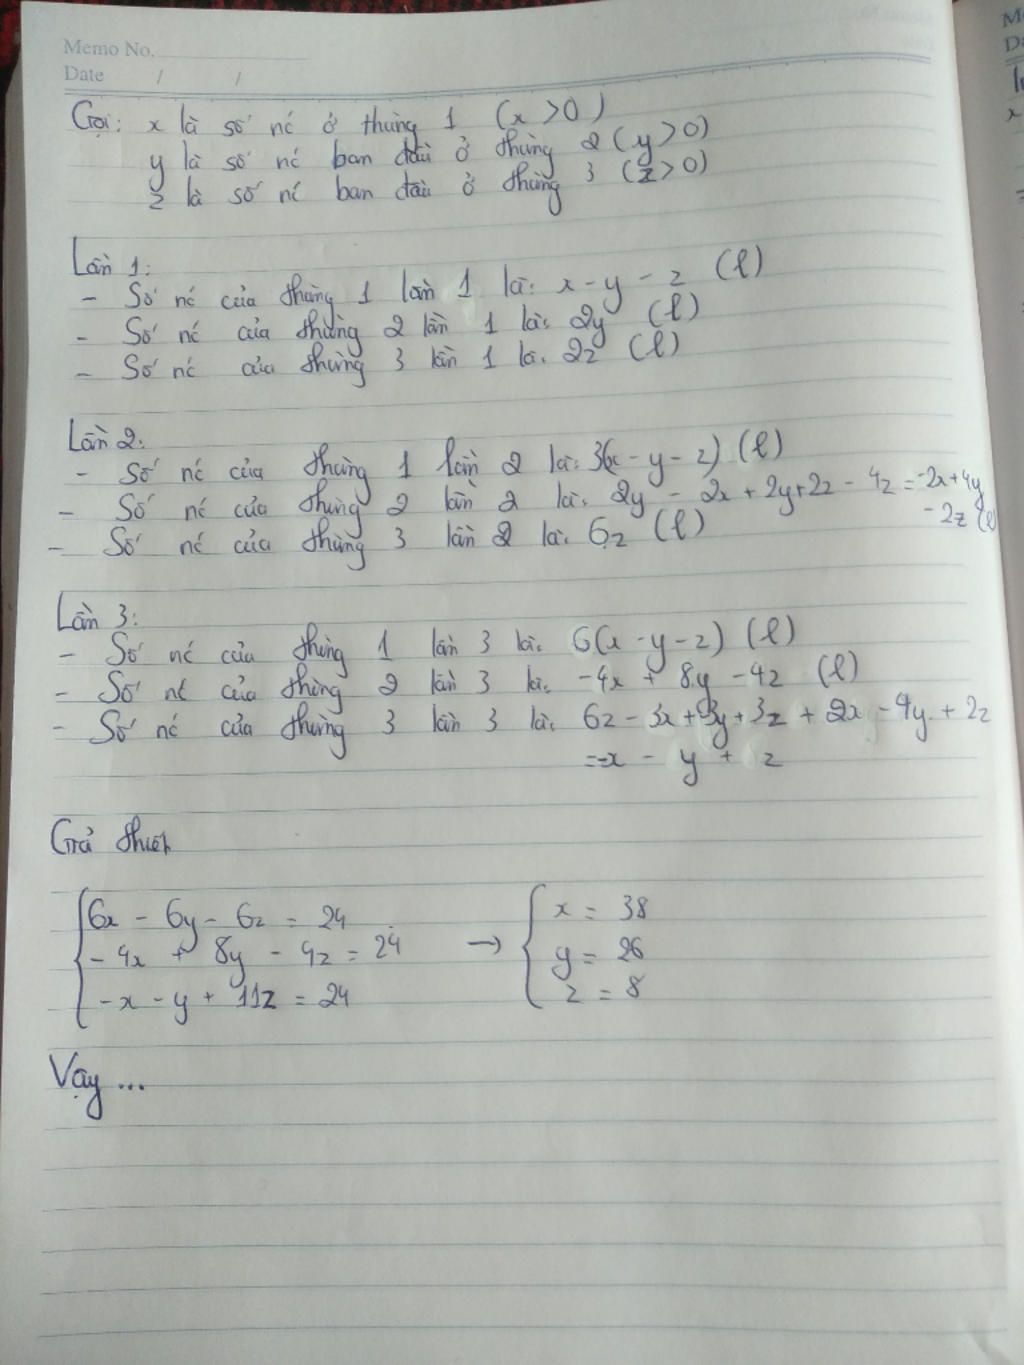 Memo No.
Date / /
Gọi: x là số nc ở thùng 1 (x > 0)
y là số nc ban đầu ở thùng 2 (y > 0)
z là số nc ban đầu ở thùng 3 (z > 0)
Lần 1:
- Số nc của thùng 1 lần 1 là: x - y - z (l)
- Số nc của thùng 2 lần 1 là: 2y (l)
- Số nc của thùng 3 lần 1 là: 2z (l)
Lần 2:
- Số nc của thùng 1 lần 2 là: 3(x - y - z) (l)
- Số nc của thùng 2 lần 2 là: 2y - 2x + 2y + 2z - 4z = -2x + 4y
- 2z (l)
- Số nc của thùng 3 lần 2 là: 6z (l)
Lần 3:
- Số nc của thùng 1 lần 3 là: 6(x - y - z) (l)
- Số nc của thùng 2 lần 3 là: -4x + 8y - 4z (l)
- Số nc của thùng 3 lần 3 là: 6z - 3x + 3y + 3z + 2x - 4y + 2z
= -x - y + z
Giả thiết
6x - 6y - 6z = 24
- 4x + 8y - 4z = 24
- x - y + 11z = 24
→
x = 38
y = 26
z = 8
Vậy ...